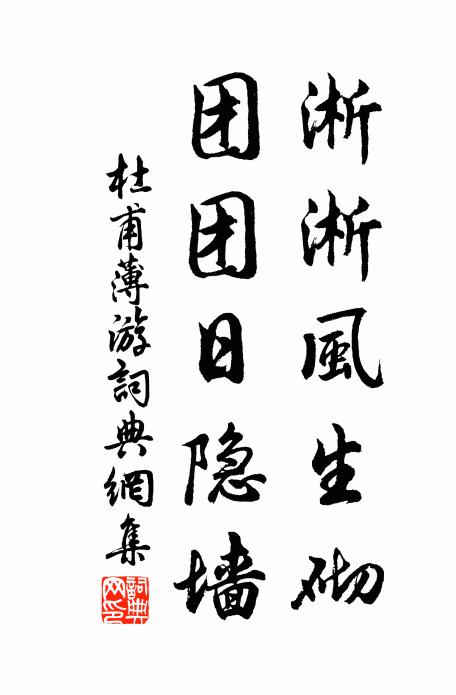 淅淅風生砌
团团日隐墙
杜甫薄游詞典網集
詞典网印